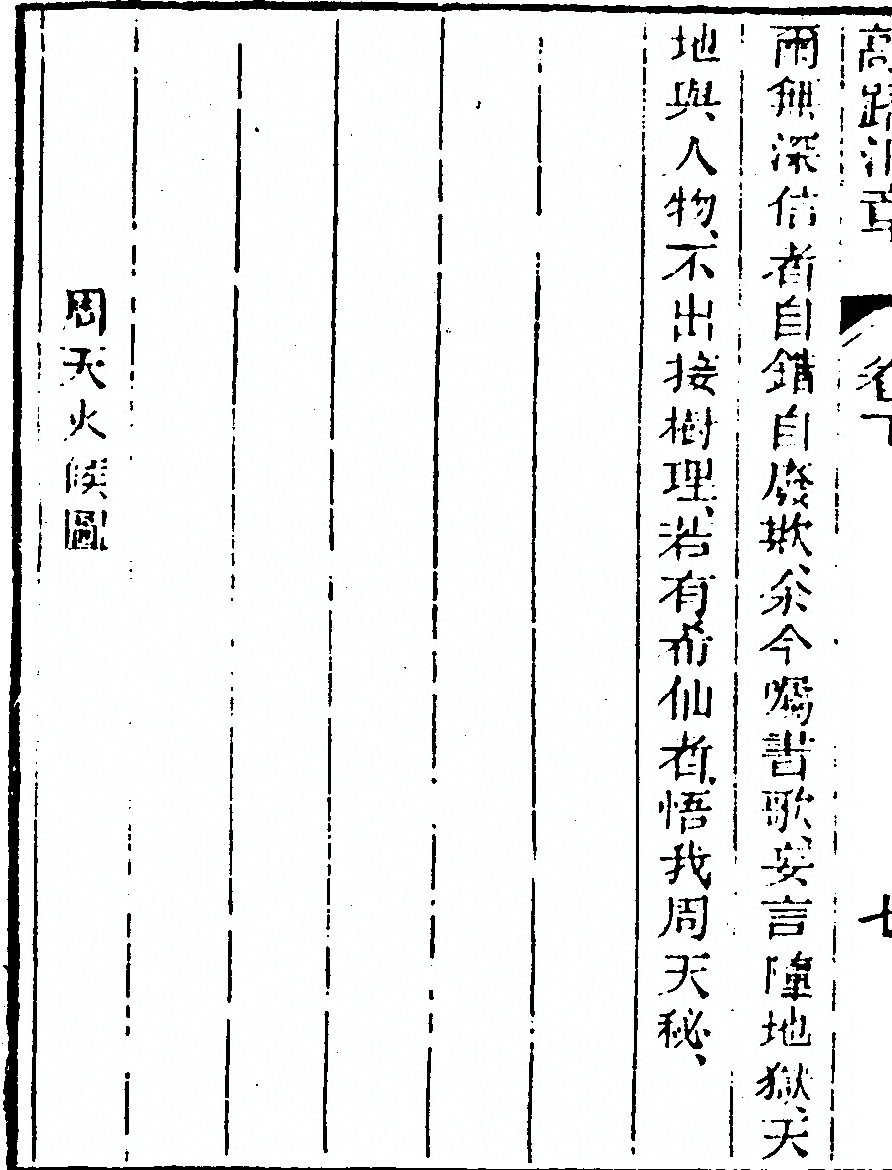 高
卷下
爾無深信者自錯自廢欺、余今囑歌、妄言墮地獄、天
地與人物、不出接樹理、若有希仙者、悟我周天秘、
周天火候圖